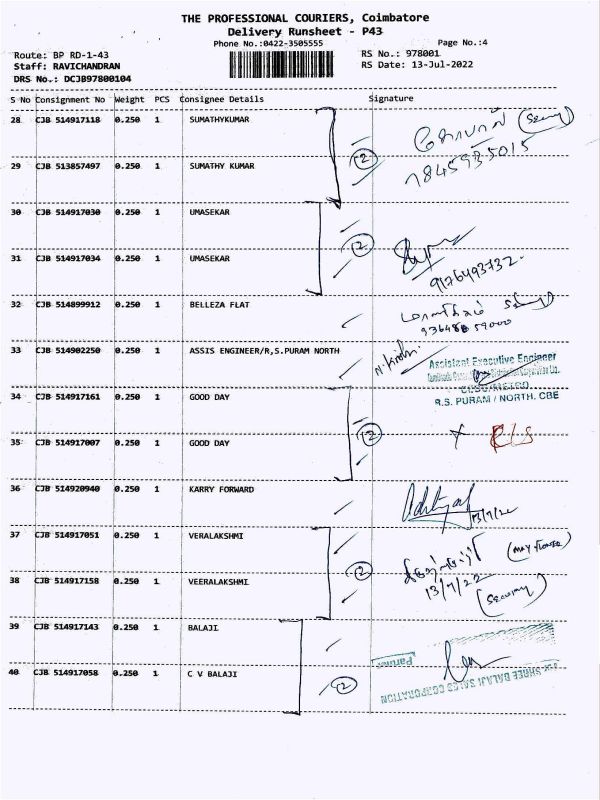 THE PROFESSIONAL COURIERS, Coimbatore
Delivery Runsheet - P43
Phone No.:0422-3505555
Page No.:4
Route: BP RD-1-43
Staff: RAVICHANDRAN
DRS No.: DCJB97800104
RS No.: 978001
RS Date: 13-Jul-2022
S No Consignment No Weight PCS Consignee Details Signature
28 CJB 514917118 0.250 1 SUMATHYKUMAR
(Security)
7845935015
29 CJB 513857497 0.250 1 SUMATHY KUMAR
2
30 CJB 514917030 0.250 1 UMASEKAR
2
31 CJB 514917034 0.250 1 UMASEKAR
9176493732
32 CJB 514899912 0.250 1 BELLEZA FLAT
33 CJB 514902250 0.250 1 ASSIS ENGINEER/R,S.PURAM NORTH
Assistant Executive Engineer
R.S. PURAM / NORTH. CBE
34 CJB 514917161 0.250 1 GOOD DAY
2
35 CJB 514917007 0.250 1 GOOD DAY
36 CJB 514920940 0.250 1 KARRY FORWARD
13/7/22
37 CJB 514917051 0.250 1 VERALAKSHMI
(MAY FLOWER)
2
13/7/22
38 CJB 514917158 0.250 1 VEERALAKSHMI
(Security)
39 CJB 514917143 0.250 1 BALAJI
40 CJB 514917058 0.250 1 C V BALAJI
2
Partner
SHREE BALAJI SALES CORPORATION